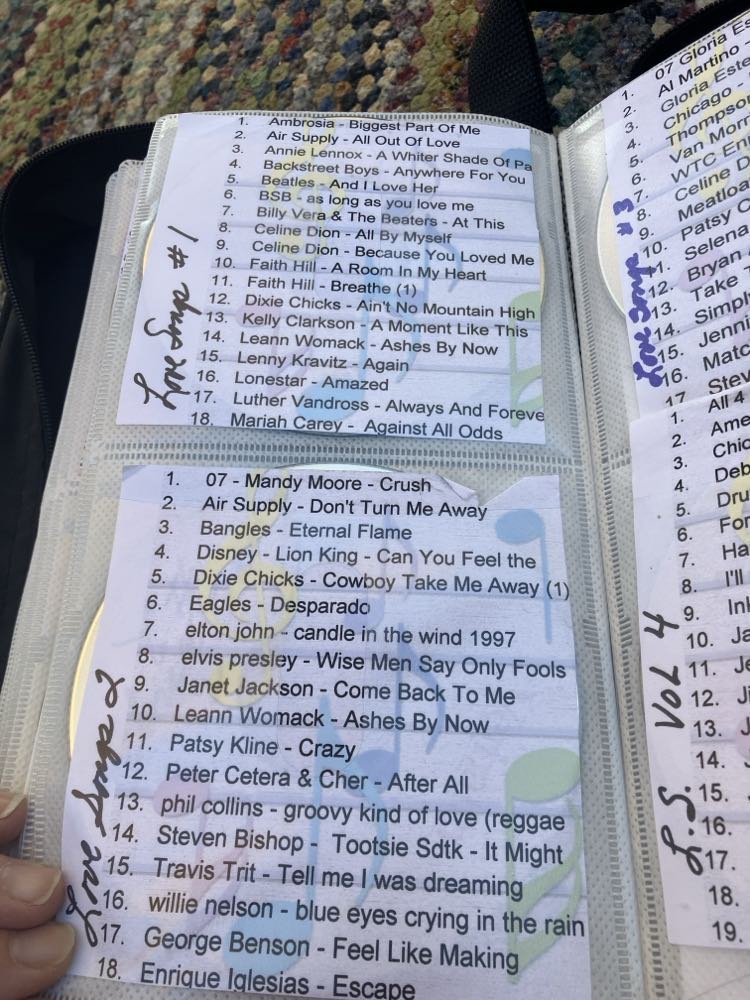 1. Ambrosia - Biggest Part Of Me
2. Air Supply - All Out Of Love
3. Annie Lennox - A Whiter Shade Of Pa
4. Backstreet Boys - Anywhere For You
5. Beatles - And I Love Her
6. BSB - as long as you love me
7. Billy Vera & The Beaters - At This
8. Celine Dion - All By Myself
9. Celine Dion - Because You Loved Me
10. Faith Hill - A Room In My Heart
11. Faith Hill - Breathe (1)
12. Dixie Chicks - Ain't No Mountain High
13. Kelly Clarkson - A Moment Like This
14. Leann Womack - Ashes By Now
15. Lenny Kravitz - Again
16. Lonestar - Amazed
17. Luther Vandross - Always And Foreve
18. Mariah Carey - Against All Odds
Love Songs #1
1. 07 - Mandy Moore - Crush
2. Air Supply - Don't Turn Me Away
3. Bangles - Eternal Flame
4. Disney - Lion King - Can You Feel the
5. Dixie Chicks - Cowboy Take Me Away (1)
6. Eagles - Desparado
7. elton john - candle in the wind 1997
8. elvis presley - Wise Men Say Only Fools
9. Janet Jackson - Come Back To Me
10. Leann Womack - Ashes By Now
11. Patsy Kline - Crazy
12. Peter Cetera & Cher - After All
13. phil collins - groovy kind of love (reggae
14. Steven Bishop - Tootsie Sdtk - It Might
15. Travis Trit - Tell me I was dreaming
16. willie nelson - blue eyes crying in the rain
17. George Benson - Feel Like Making
18. Enrique Iglesias - Escape
Love Songs 2
1. 07 Gloria Es
2. Al Martino -
3. Gloria Este
4. Chicago -
5. Thompson
6. Van Morr
7. WTC Enr
8. Celine D
9. Meatloa
10. Patsy C
11. Selena
12. Bryan
13. Take
14. Simpl
15. Jenni
16. Matc
17. Stev
Love Songs #3
1. All 4
2. Ame
3. Chic
4. Deb
5. Dru
6. For
7. Ha
8. I'll
9. Inl
10. Ja
11. Je
12. Ji
13. J
14.
15.
16.
17.
18.
19.
L.S. Vol 4